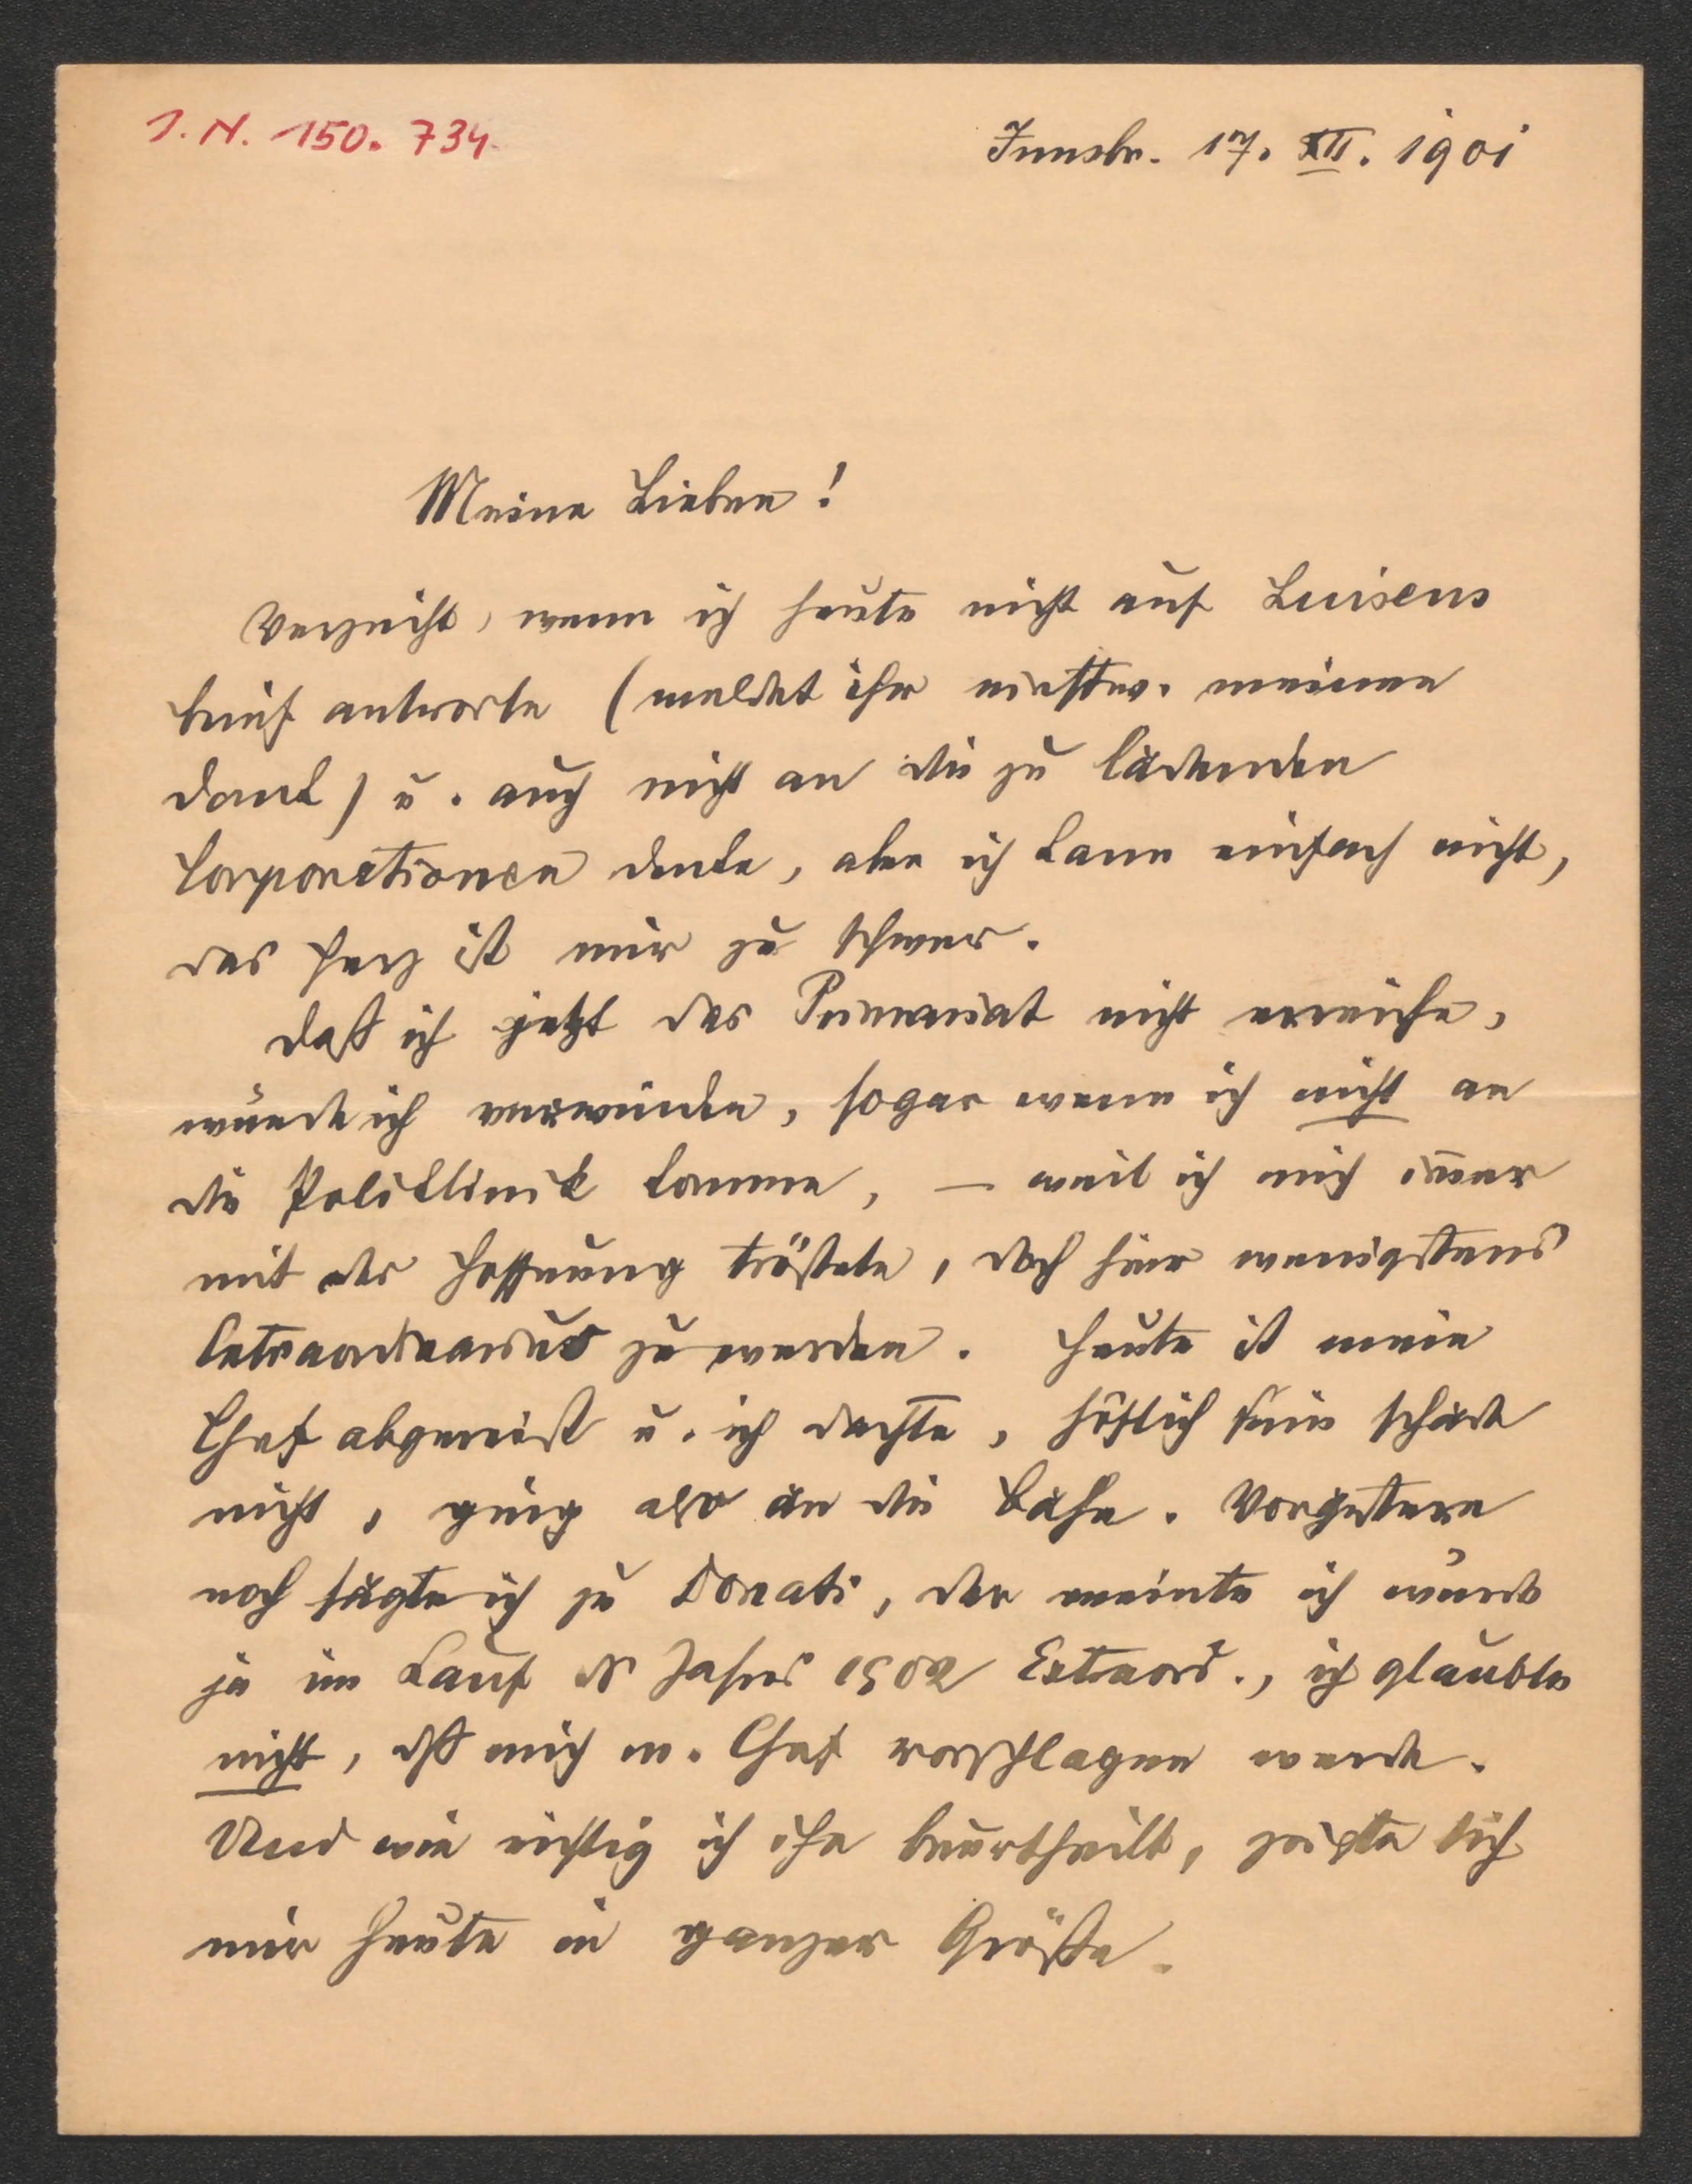 I. N. 150.734
Innsbr. 17. XII. 1901
Meine Lieben!
Verzeiht, wenn ich heute nicht auf Luisens
brief antworte (meldet ihr meinen
Dank) u. auch nicht an die zu ladenden
Corporationen denke, aber ich kann einfach nicht,
das Herz ist mir zu schwer.
Daß ich jetzt das Primariat nicht erreiche,
würde ich verwinden, sogar wenn ich nicht an
die Poliklinik komme, – weil ich mich im̄er
mit der Hoffnung tröstete, doch hier wenigstens
Extraordinarius zu werden. Heute ist mein
Chef abgereist u. ich dachte, höflich sein schade
nicht, ging also an die Bahn. Vorgestern
noch sagte ich zu Donati, der meinte ich würde
ja im Lauf d. Jahres 1902 Extraord., ich glaubte
nicht, dß mich m. Chef vorschlagen werde.
Und wie richtig ich ihn beurtheilt, zeigte sich
mir heute in ganzer Größe.